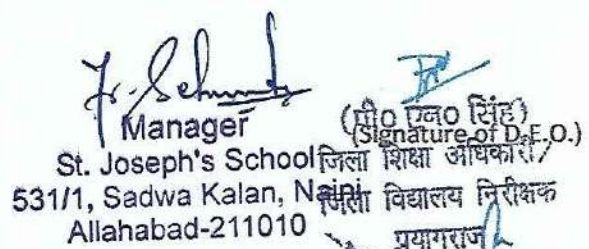 Manager
St. Joseph's School
531/1, Sadwa Kalan, Naini
Allahabad-211010
(पी० एन० सिंह)
(Signature of D.E.O.)
जिला शिक्षा अधिकारी/
जिला विद्यालय निरीक्षक
प्रयागराज